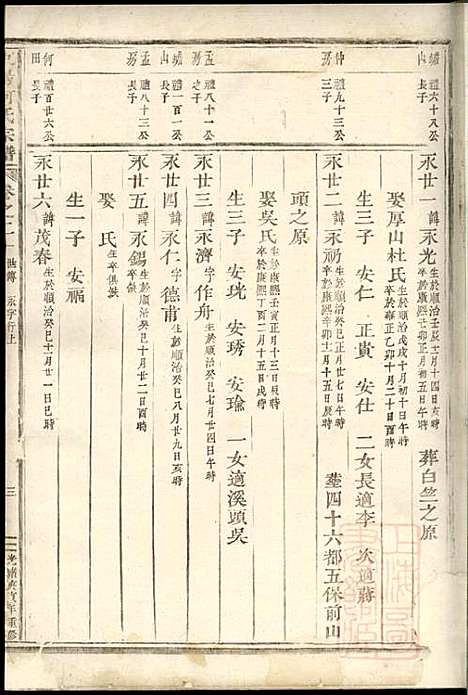 塘山 禮六十八公長子
永廿一 諱永光 生於順治壬辰三月十四日亥時 卒於康熙壬子正月初五日戌時 葬白竺之原
娶厚山杜氏 生於順治戊戌十月初十日午時 卒於雍正乙卯十月二十日酉時
生三子 安仁 正貴 安仕 二女長適李 次適蔣
仲房 禮九十三公三子
永廿二 諱永礽 生於順治癸巳正月廿七日午時 卒於康熙辛卯三月十五日亥時 塟四十六都五保前山
頭之原
娶吳氏 生於康熙壬寅正月十三日時 卒於康熙丁酉二月十五日亥時
生三子 安珖 安琇 安瑜 一女適溪頭吳
孟房 禮八十一公之子
永廿三 諱永濟 字作舟 生於順治癸巳七月廿四日午時
塘山 禮一百一公長子
永廿四 諱永仁 字德甫 生於順治癸巳八月廿九日亥時
孟房 禮八十三公長子
永廿五 諱永錫 生於順治癸巳十月廿二日酉時
娶 氏 生卒俱缺
何田 禮百廿六公長子
永廿六 諱茂春 生於順治癸巳十一月廿一日巳時
生一子 安福
宗譜
世傳 永字行上
三
光緒庚寅年重修